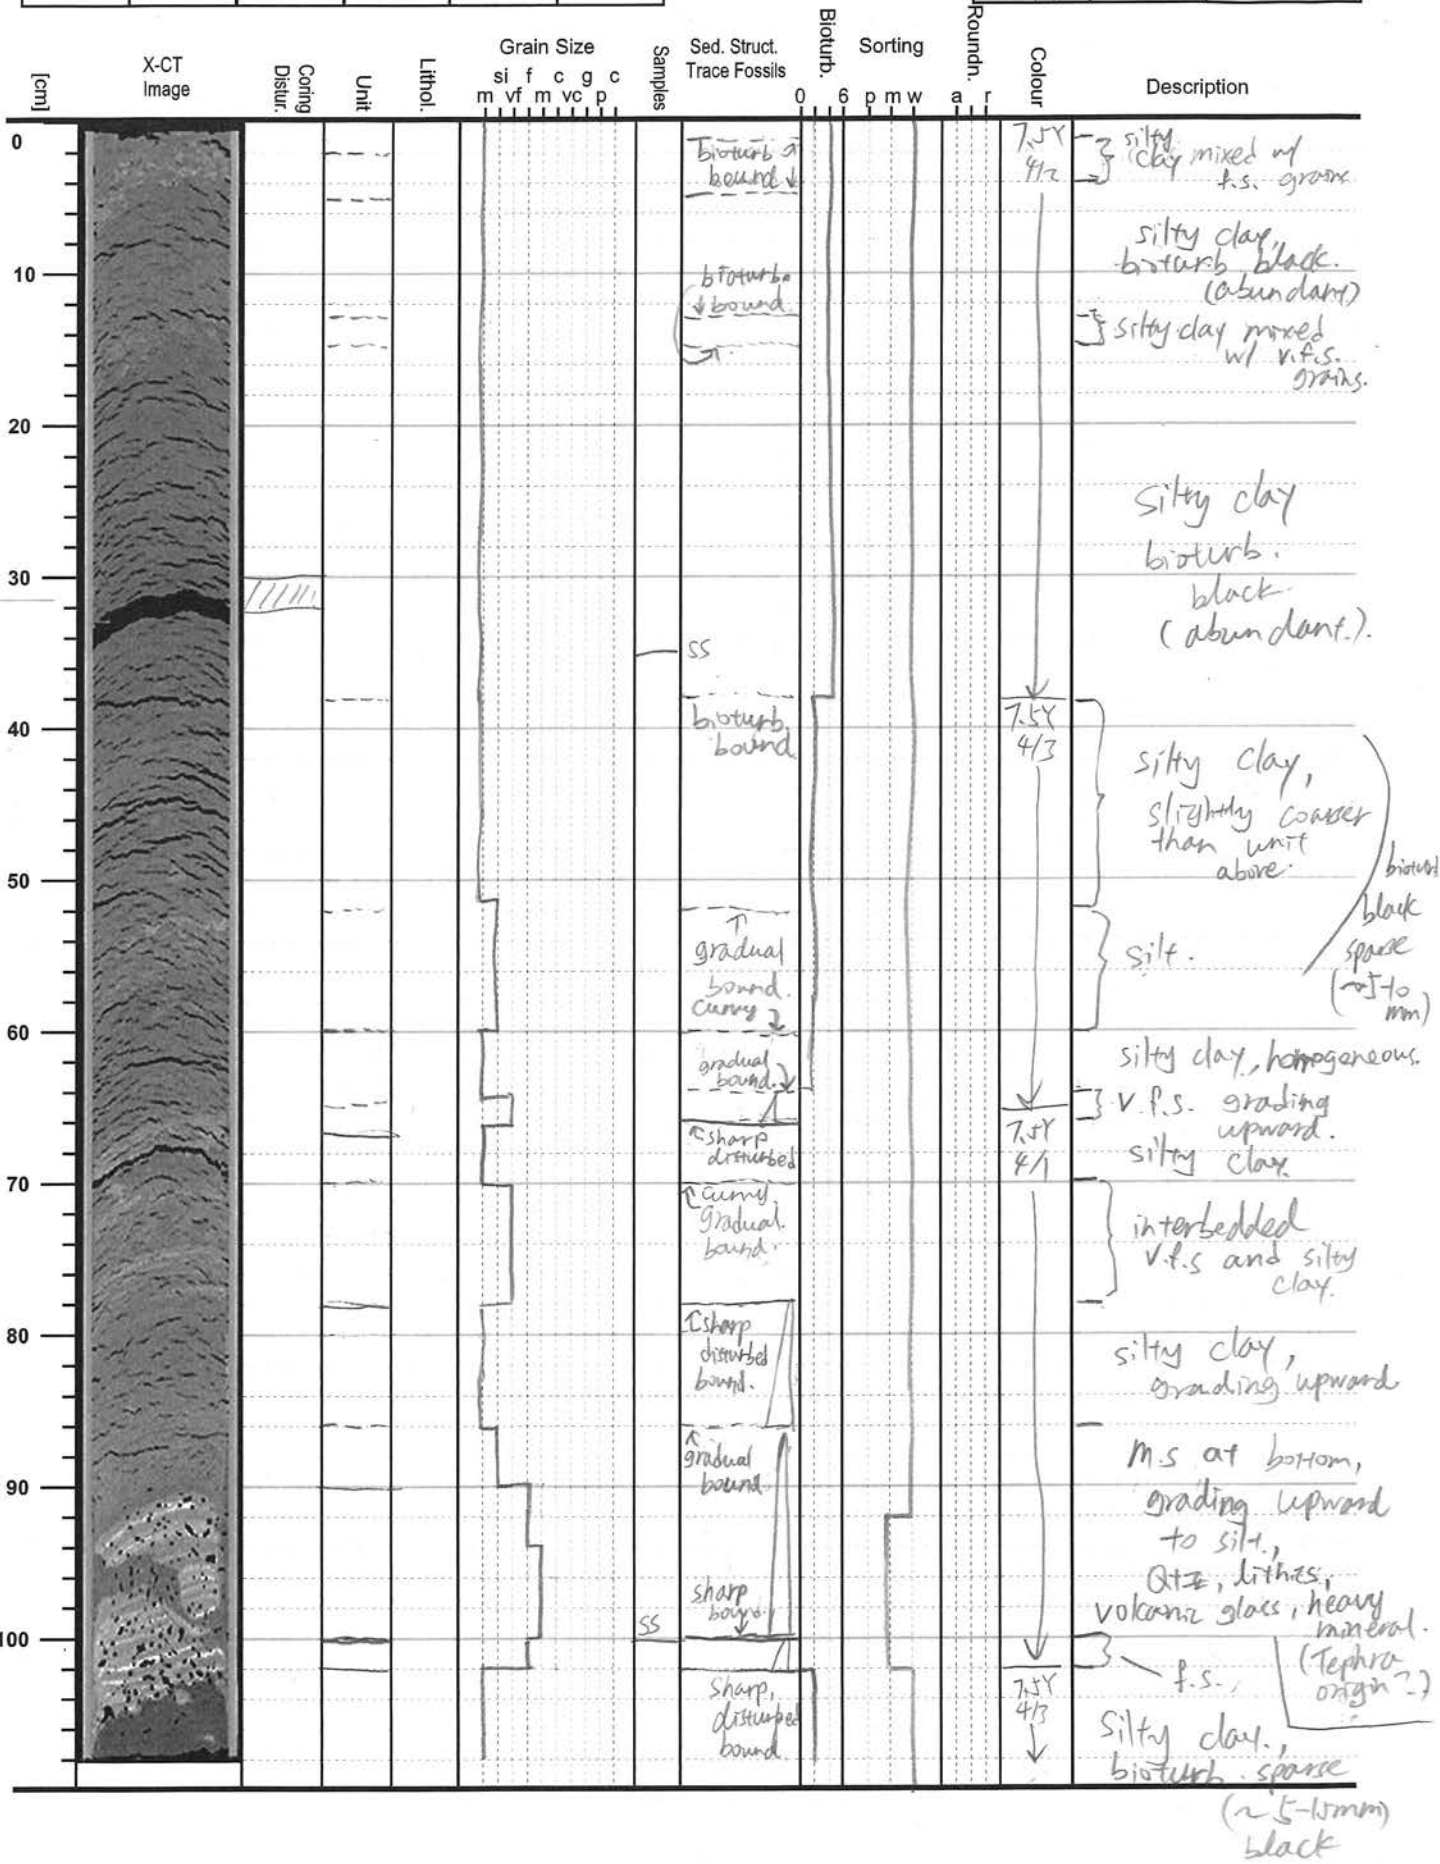 [cm]
X-CT
Image
Coring
Distur.
Unit
Lithol.
Grain Size
si f c g c
m vf m vc p
Samples
Sed. Struct.
Trace Fossils
Bioturb.
0 6
Sorting
p m w
Roundn.
a r
Colour
Description
0
10
20
30
40
50
60
70
80
90
100
SS
SS
bioturb
bound
bioturb.
bound.
bioturb.
bound
gradual
bound.
curvy
gradual
bound.
sharp
disturbed
curvy,
gradual.
bound.
sharp
disturbed
bound.
gradual
bound.
sharp
bound.
sharp,
disturbed
bound.
7.5Y
4/2
7.5Y
4/3
7.5Y
4/1
7.5Y
4/3
silty
clay mixed w/
f.s. grains
silty clay,
bioturb black.
(abundant)
silty clay mixed
w/ v.f.s.
grains.
silty clay
bioturb.
black.
(abundant.).
silty clay,
slightly coarser
than unit
above.
silt.
bioturb
black
sparse
mm)
silty clay, homogeneous.
v.f.s. grading
upward.
silty clay.
interbedded
v.f.s and silty
clay.
silty clay,
grading upward
M.S at bottom,
grading upward
to silt.,
Qtz, lithics,
volcanic glass, heavy
mineral.
(Tephra
origin?)
f.s.,
Silty clay.,
bioturb. sparse
(~5-15mm)
black